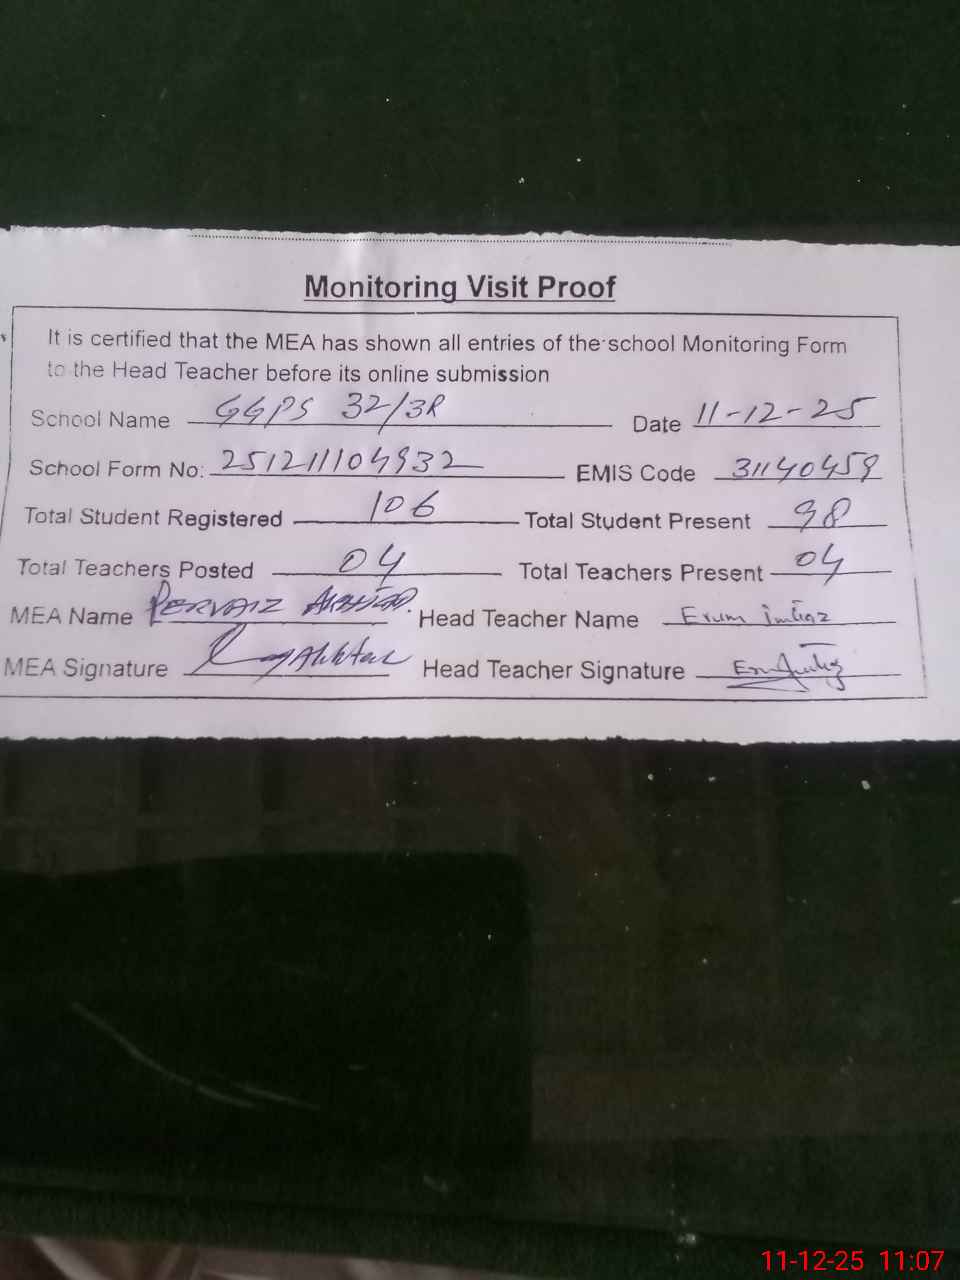 Monitoring Visit Proof
It is certified that the MEA has shown all entries of the school Monitoring Form
to the Head Teacher before its online submission
School Name GGPS 32/3R Date 11-12-25
School Form No: 251211104932 EMIS Code 31140459
Total Student Registered 106 Total Student Present 98
Total Teachers Posted 04 Total Teachers Present 04
MEA Name PERVAIZ AKHTAR. Head Teacher Name Erum imtiaz
MEA Signature Akhtar Head Teacher Signature
11-12-25 11:07